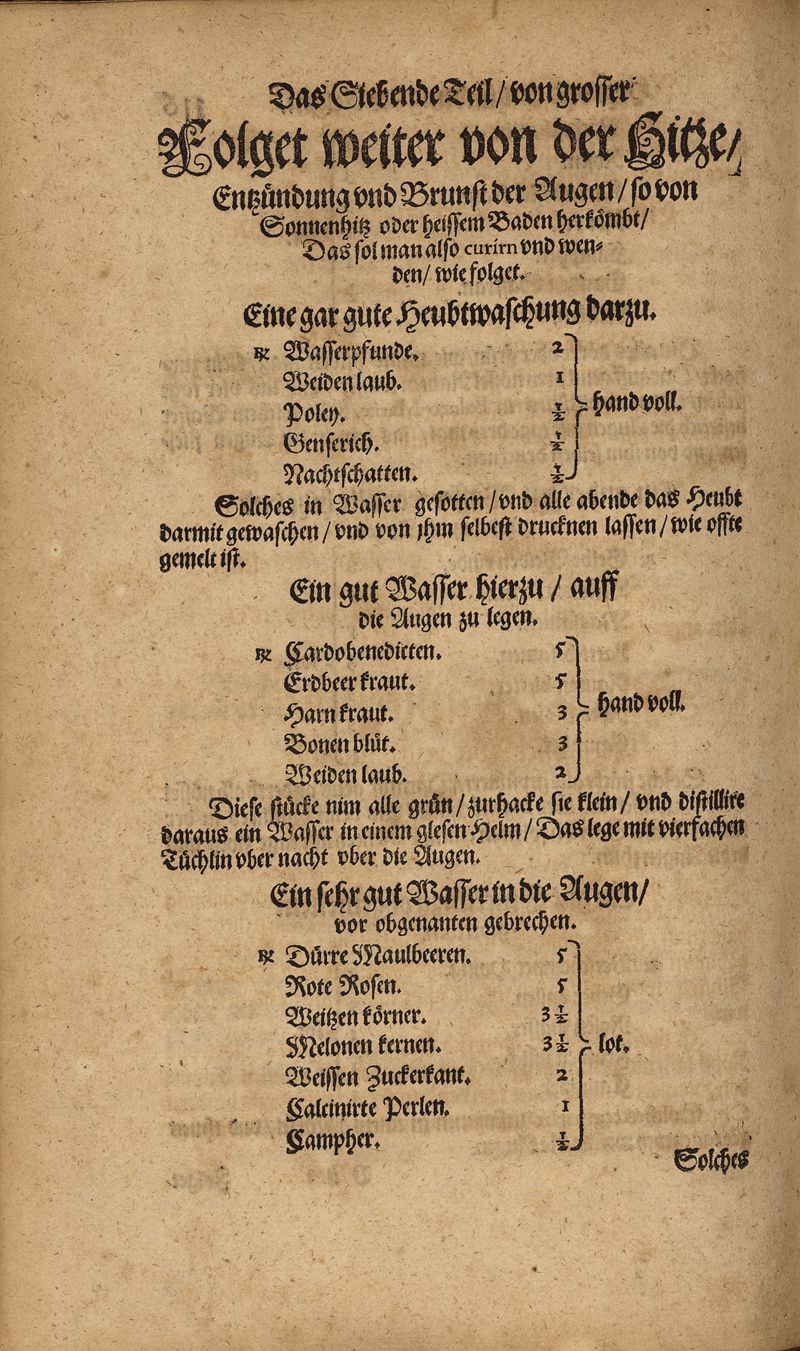 Das Siebende Teil / von grosser
Folget weiter von der Hitze /
Entzündung vnd Brunst der Augen / so von
Sonnenhitz oder heissem Baden herkömbt /
Das sol man also curirn vnd wen-
den / wie folget.
Eine gar gute Heubtwaschung darzu.
℞ Wasserpfunde. 2
Weiden laub. 1
Poley. ½ hand voll.
Genserich. ½
Nachtschatten. ½
Solches in Wasser gesotten / vnd alle abende das Heubt
darmit gewaschen / vnd von jhm selbest drucknen lassen / wie offte
gemelt ist.
Ein gut Wasser hierzu / auff
die Augen zu legen.
℞ Cardobenedicten. 5
Erdbeer kraut. 5
Harn kraut. 3 hand voll.
Bonen blüt. 3
Weiden laub. 2
Diese stücke nim alle grün / zurhacke sie klein / vnd distillire
daraus ein Wasser in einem glesen Helm / Das lege mit vierfachen
Tüchlin vber nacht vber die Augen.
Ein sehr gut Wasser in die Augen /
vor obgenanten gebrechen.
℞ Dürre Maulbeeren. 5
Rote Rosen. 5
Weitzen körner. 3 ½
Melonen kernen. 3 ½ lot.
Weissen Zuckerkant. 2
Calcinirte Perlen. 1
Campher. ½
Solches